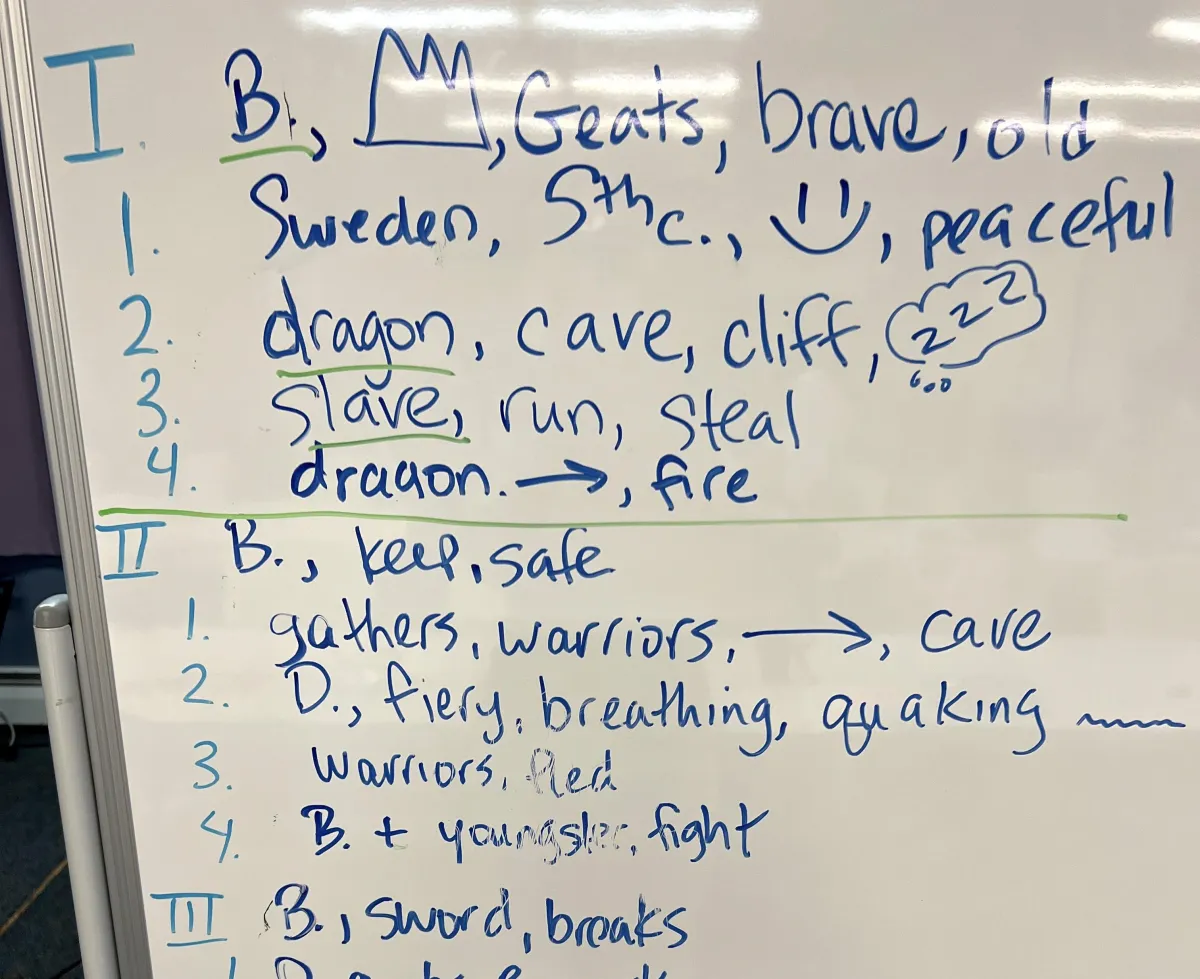 I. B., Geats, brave, old
1. Sweden, 5th c., peaceful
2. dragon, cave, cliff, zzz
3. slave, run, steal
4. dragon. →, fire
II B., keep, safe
1. gathers, warriors, →, cave
2. D., fiery, breathing, quaking
3. warriors, fled
4. B. + youngster, fight
III B., sword, breaks